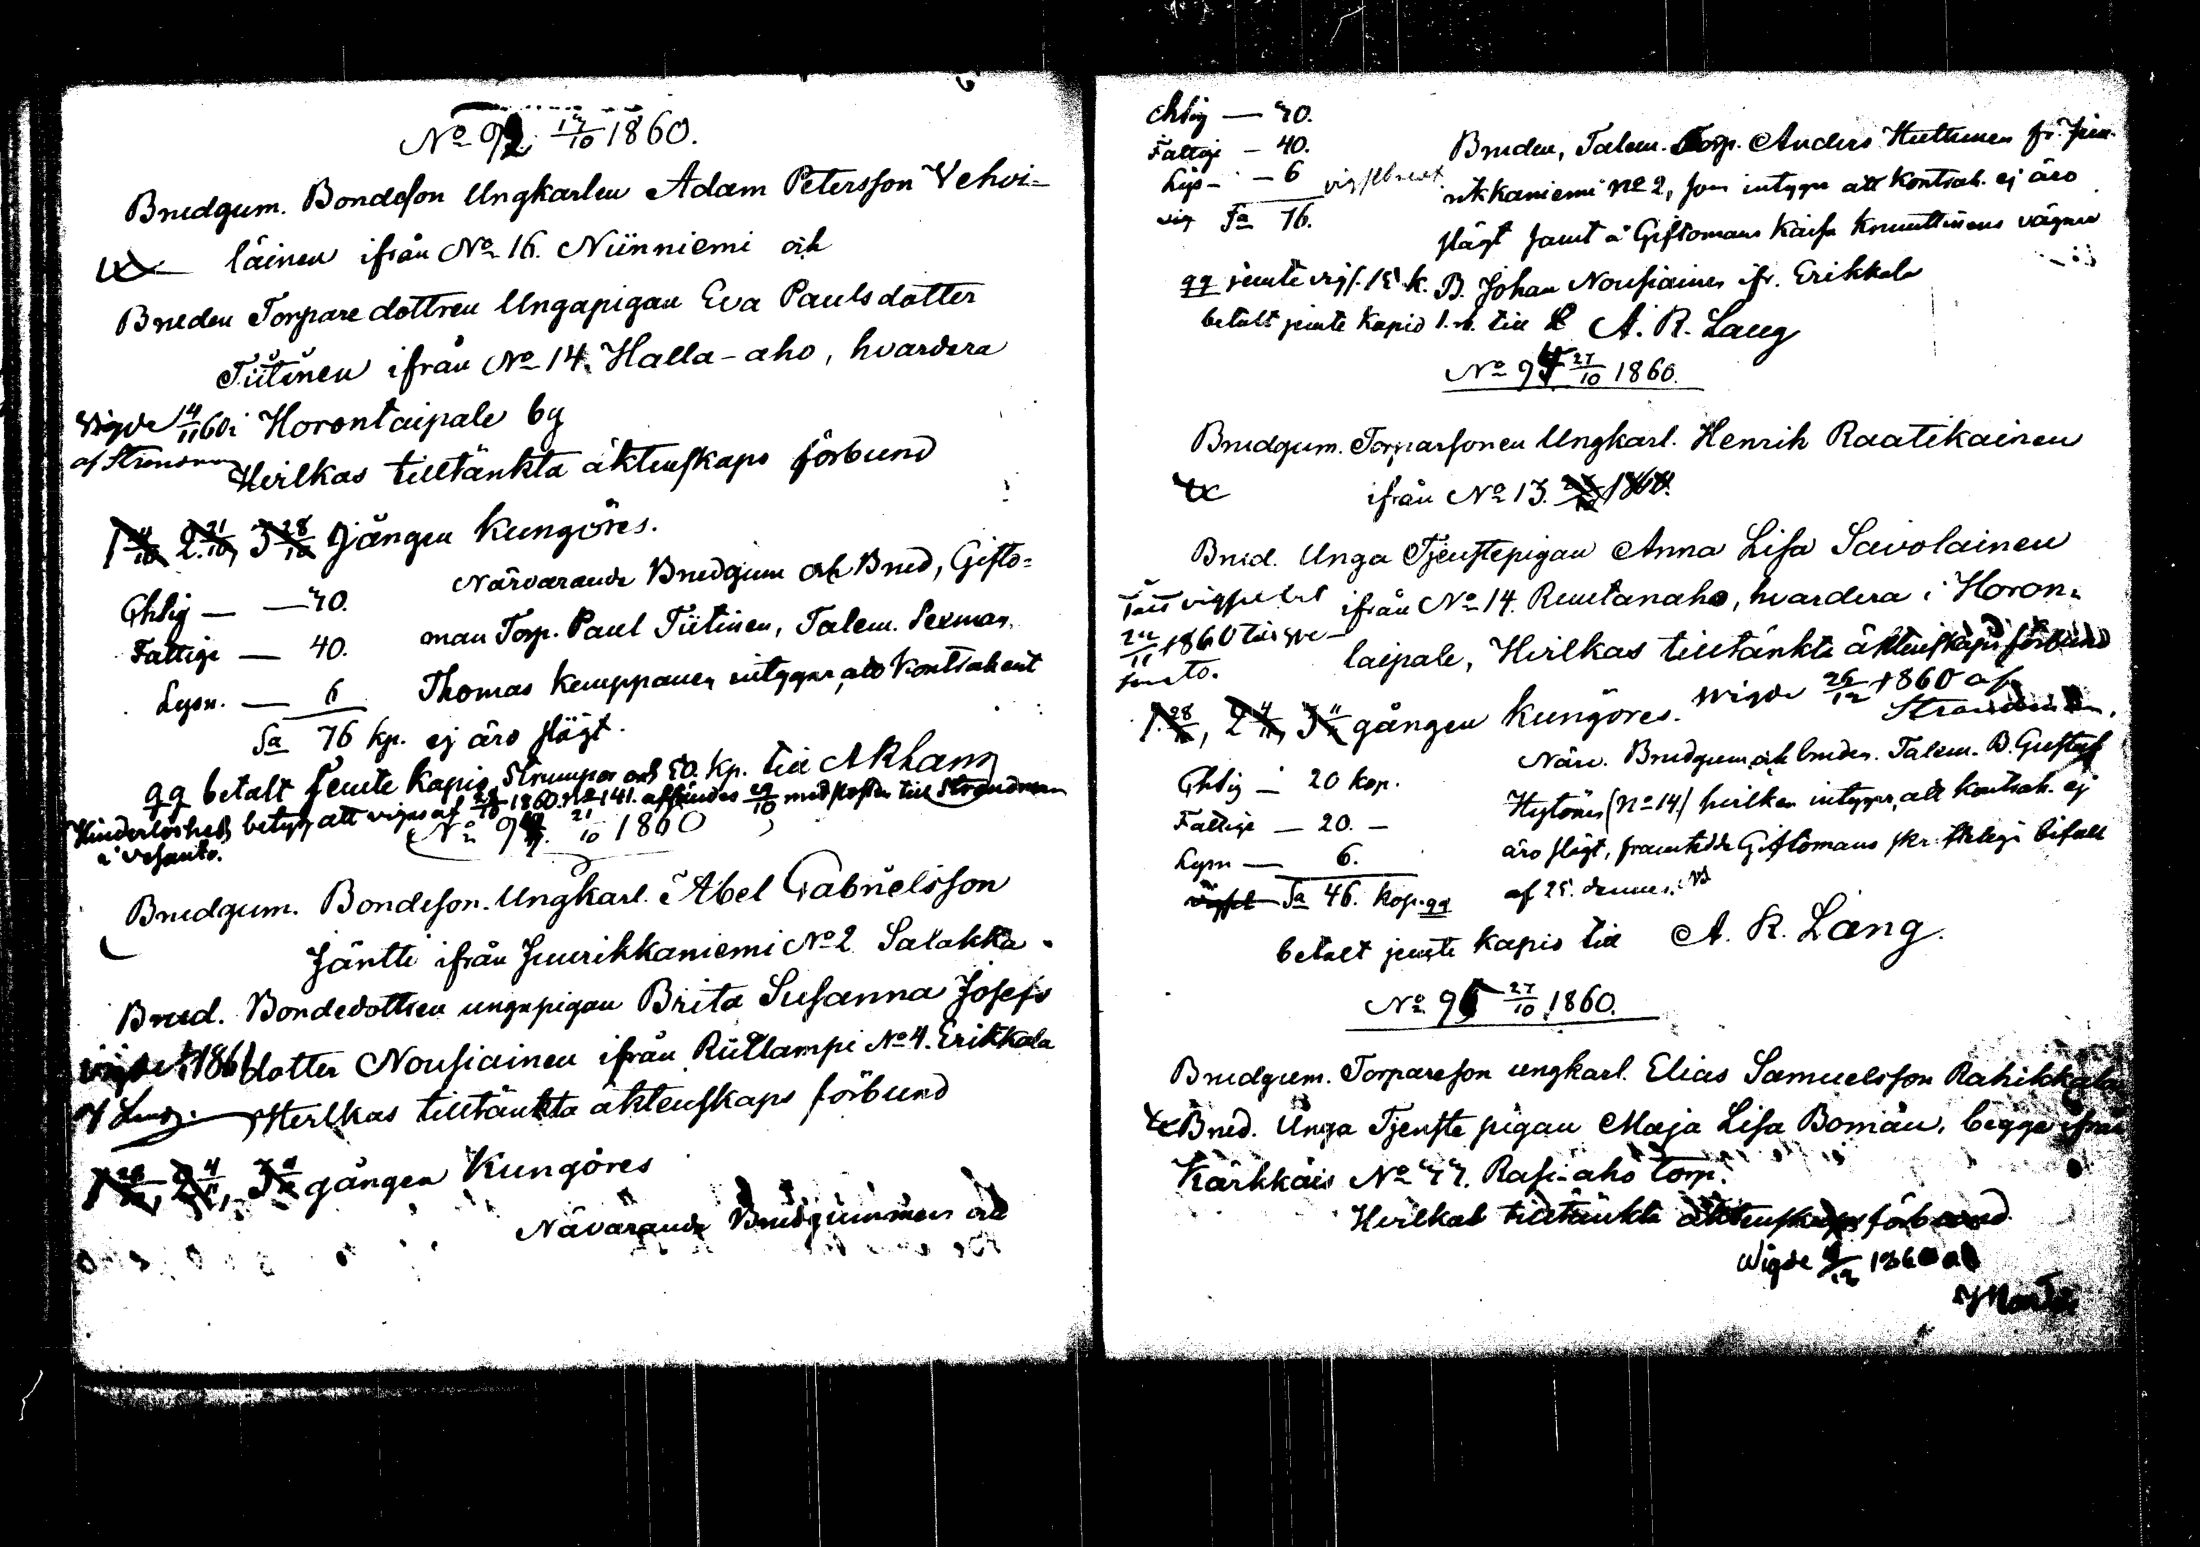 No 92 14/10 1860.
Brudgum. Bondeson Ungkarlen Adam Petersson Vehvi-
läinen ifrån No 16. Niinniemi och
Bruden Torpare dottren Ungapigan Eva Paulsdotter
Tiitinen ifrån No 14. Halla-aho, hvardera
Vigde 14/11 60 i Horontaipale by
af Strandman
Hvilkas tilltänkta äktenskaps förbund
1 14/10 2 21/10, 3 28/10 gången kungöres.
Närvarande Brudgum och Brud, Gifto-
Ghlig — 30.
man Torp. Paul Tiitinen, Talem. Sexman
Fattige — 40.
Thomas Kemppainen intygar, att Kontrahent
Lysn. — 6
Sa 76 kp. ej äro slägt.
qq betalt jemte kapio Strumpor och 50. kp. till A R Lang
Hinderlöshets betyg att vigas af 28/10 1860. No 141. afsändes 29/10 med posten till Strandman
i Vesanto.
No 93. 21/10 1860
Brudgum. Bondeson. Ungkarl. Abel Gabrielsson
Jäntti ifrån Juurikkaniemi No 2 Salakka-
Brud. Bondedottren ungapigan Brita Susanna Josefs
dotter Nousiainen ifrån Riitlampi No 4. Erikkala
vigde 1861
af Lang.
Hvilkas tilltänkta äktenskaps förbund
1 28/10, 2 4/11, 3 11/11 gången Kungöres
Närvarande Brudgummen och
Ghlig — 30.
Fattige — 40.
Lys- — 6
Sa 76.
Bruden, Talem. Torp. Anders Huttunen fr. Juu-
rikkaniemi No 2, som intygar att Kontrah. ej äro
slägt samt å Giftomans Kaisa Knuuttinens vägnar
qq jemte vigs. 15 k. B. Johan Nousiainen ifr. Erikkala
betalt jemte Kapio 1. rb. till A. R. Lang
No 94 27/10 1860.
Brudgum. Torparsonen Ungkarl. Henrik Raatikainen
ifrån No 13.
Brud. Unga Tjenstepigan Anna Lisa Savolainen
ifrån No 14. Ruutanaho, hvardera i Horon-
taipale, Hvilkas tilltänkta äktenskaps förbund
1 28/10, 2 4/11, 3 11/11 gången kungöres. wigde 26/12 1860 af
Strandman.
Närv. Brudgum och bruden. Talem. B. Gustaf
Ghlig — 20 kop.
Hytönen (No 14) hvilken intygar, att kontrah. ej
Fattige — 20. —
äro slägt, framtedde Giftomans skr. bifall
Lysn — 6.
af 25. dennes.
Sa 46. kop. qq
betalt jemte kapio till A. R. Lang.
No 95 27/10 1860.
Brudgum. Torpareson ungkarl. Elias Samuelsson Rahikkala
Brud. Unga Tjenste pigan Maja Lisa Boman, begge ifrån
Kärkkäis No 47. Rasi-aho torp.
Hvilkas tilltänkta äktenskaps förbund
Wigde 12 1860 af